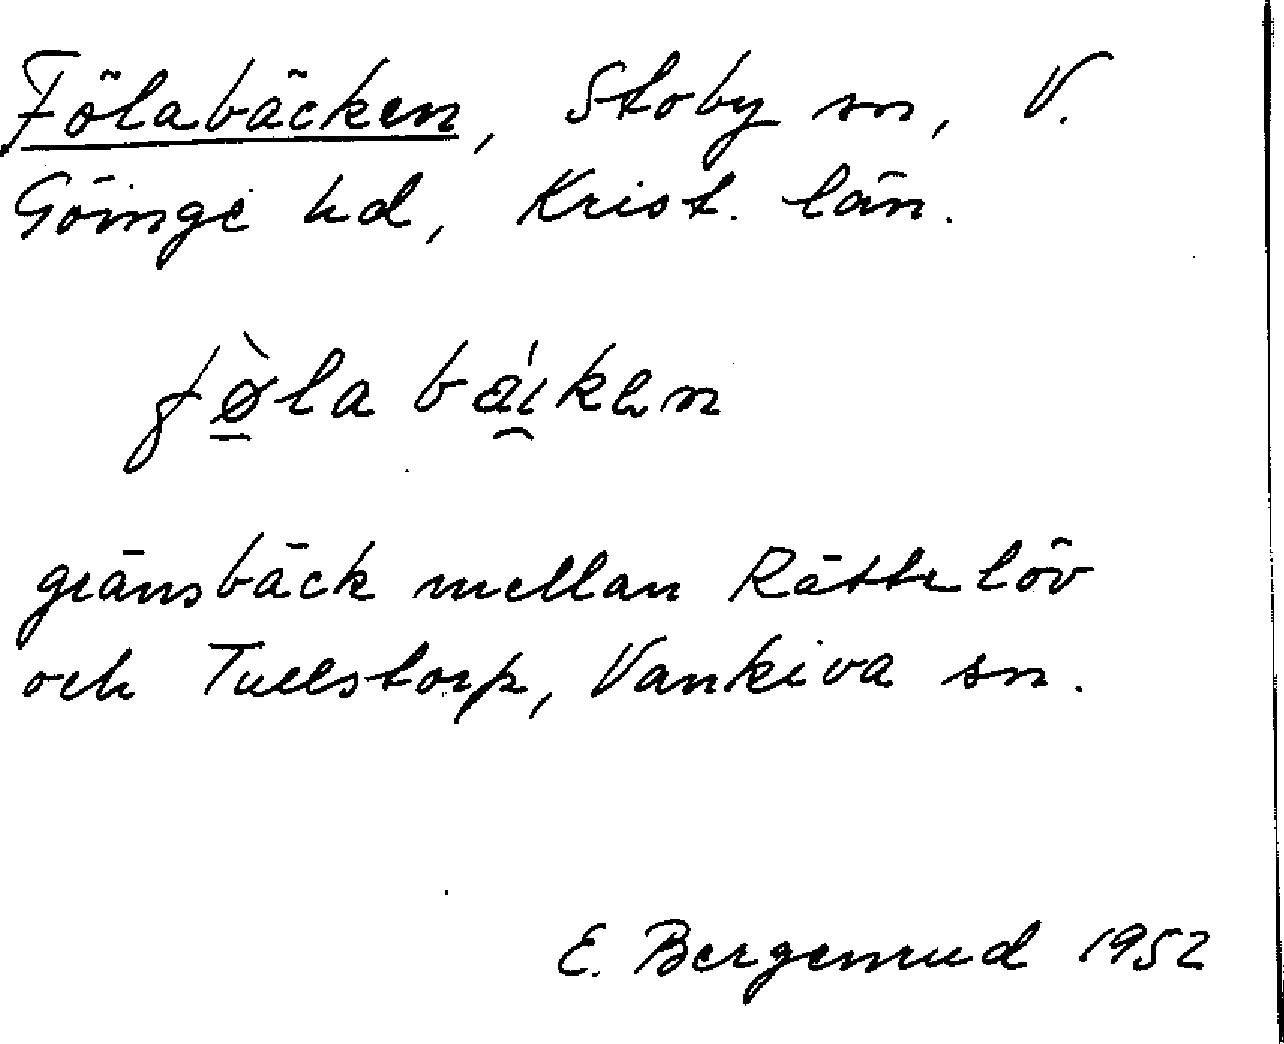 Fölabäcken, Stoby sn, V.
Göinge hd, Krist. län.
fø̠̀la bǽ̯ıkən
gränsbäck mellan Rättelöv
och Tullstorp, Vankiva sn.
E. Bergenrud 1952